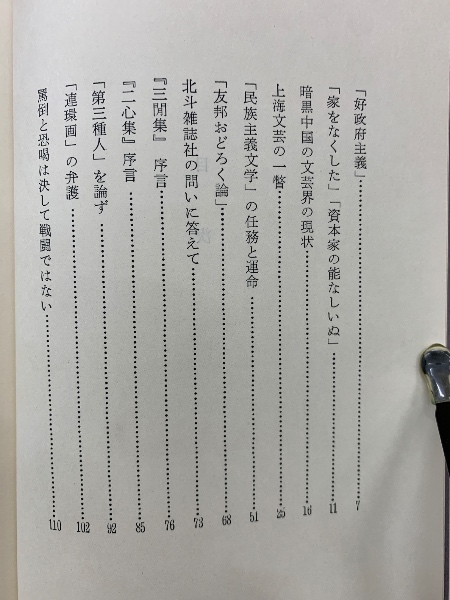 「好政府主義」……7
「家をなくした」「資本家の能なしいぬ」……11
暗黒中国の文芸界の現状……16
上海文芸の一瞥……25
「民族主義文学」の任務と運命……51
「友邦おどろく論」……68
北斗雑誌社の問いに答えて……73
『三閒集』 序言……76
『二心集』序言……85
「第三種人」を論ず……92
「連環画」の弁護……102
罵倒と恐喝は決して戦闘ではない……110